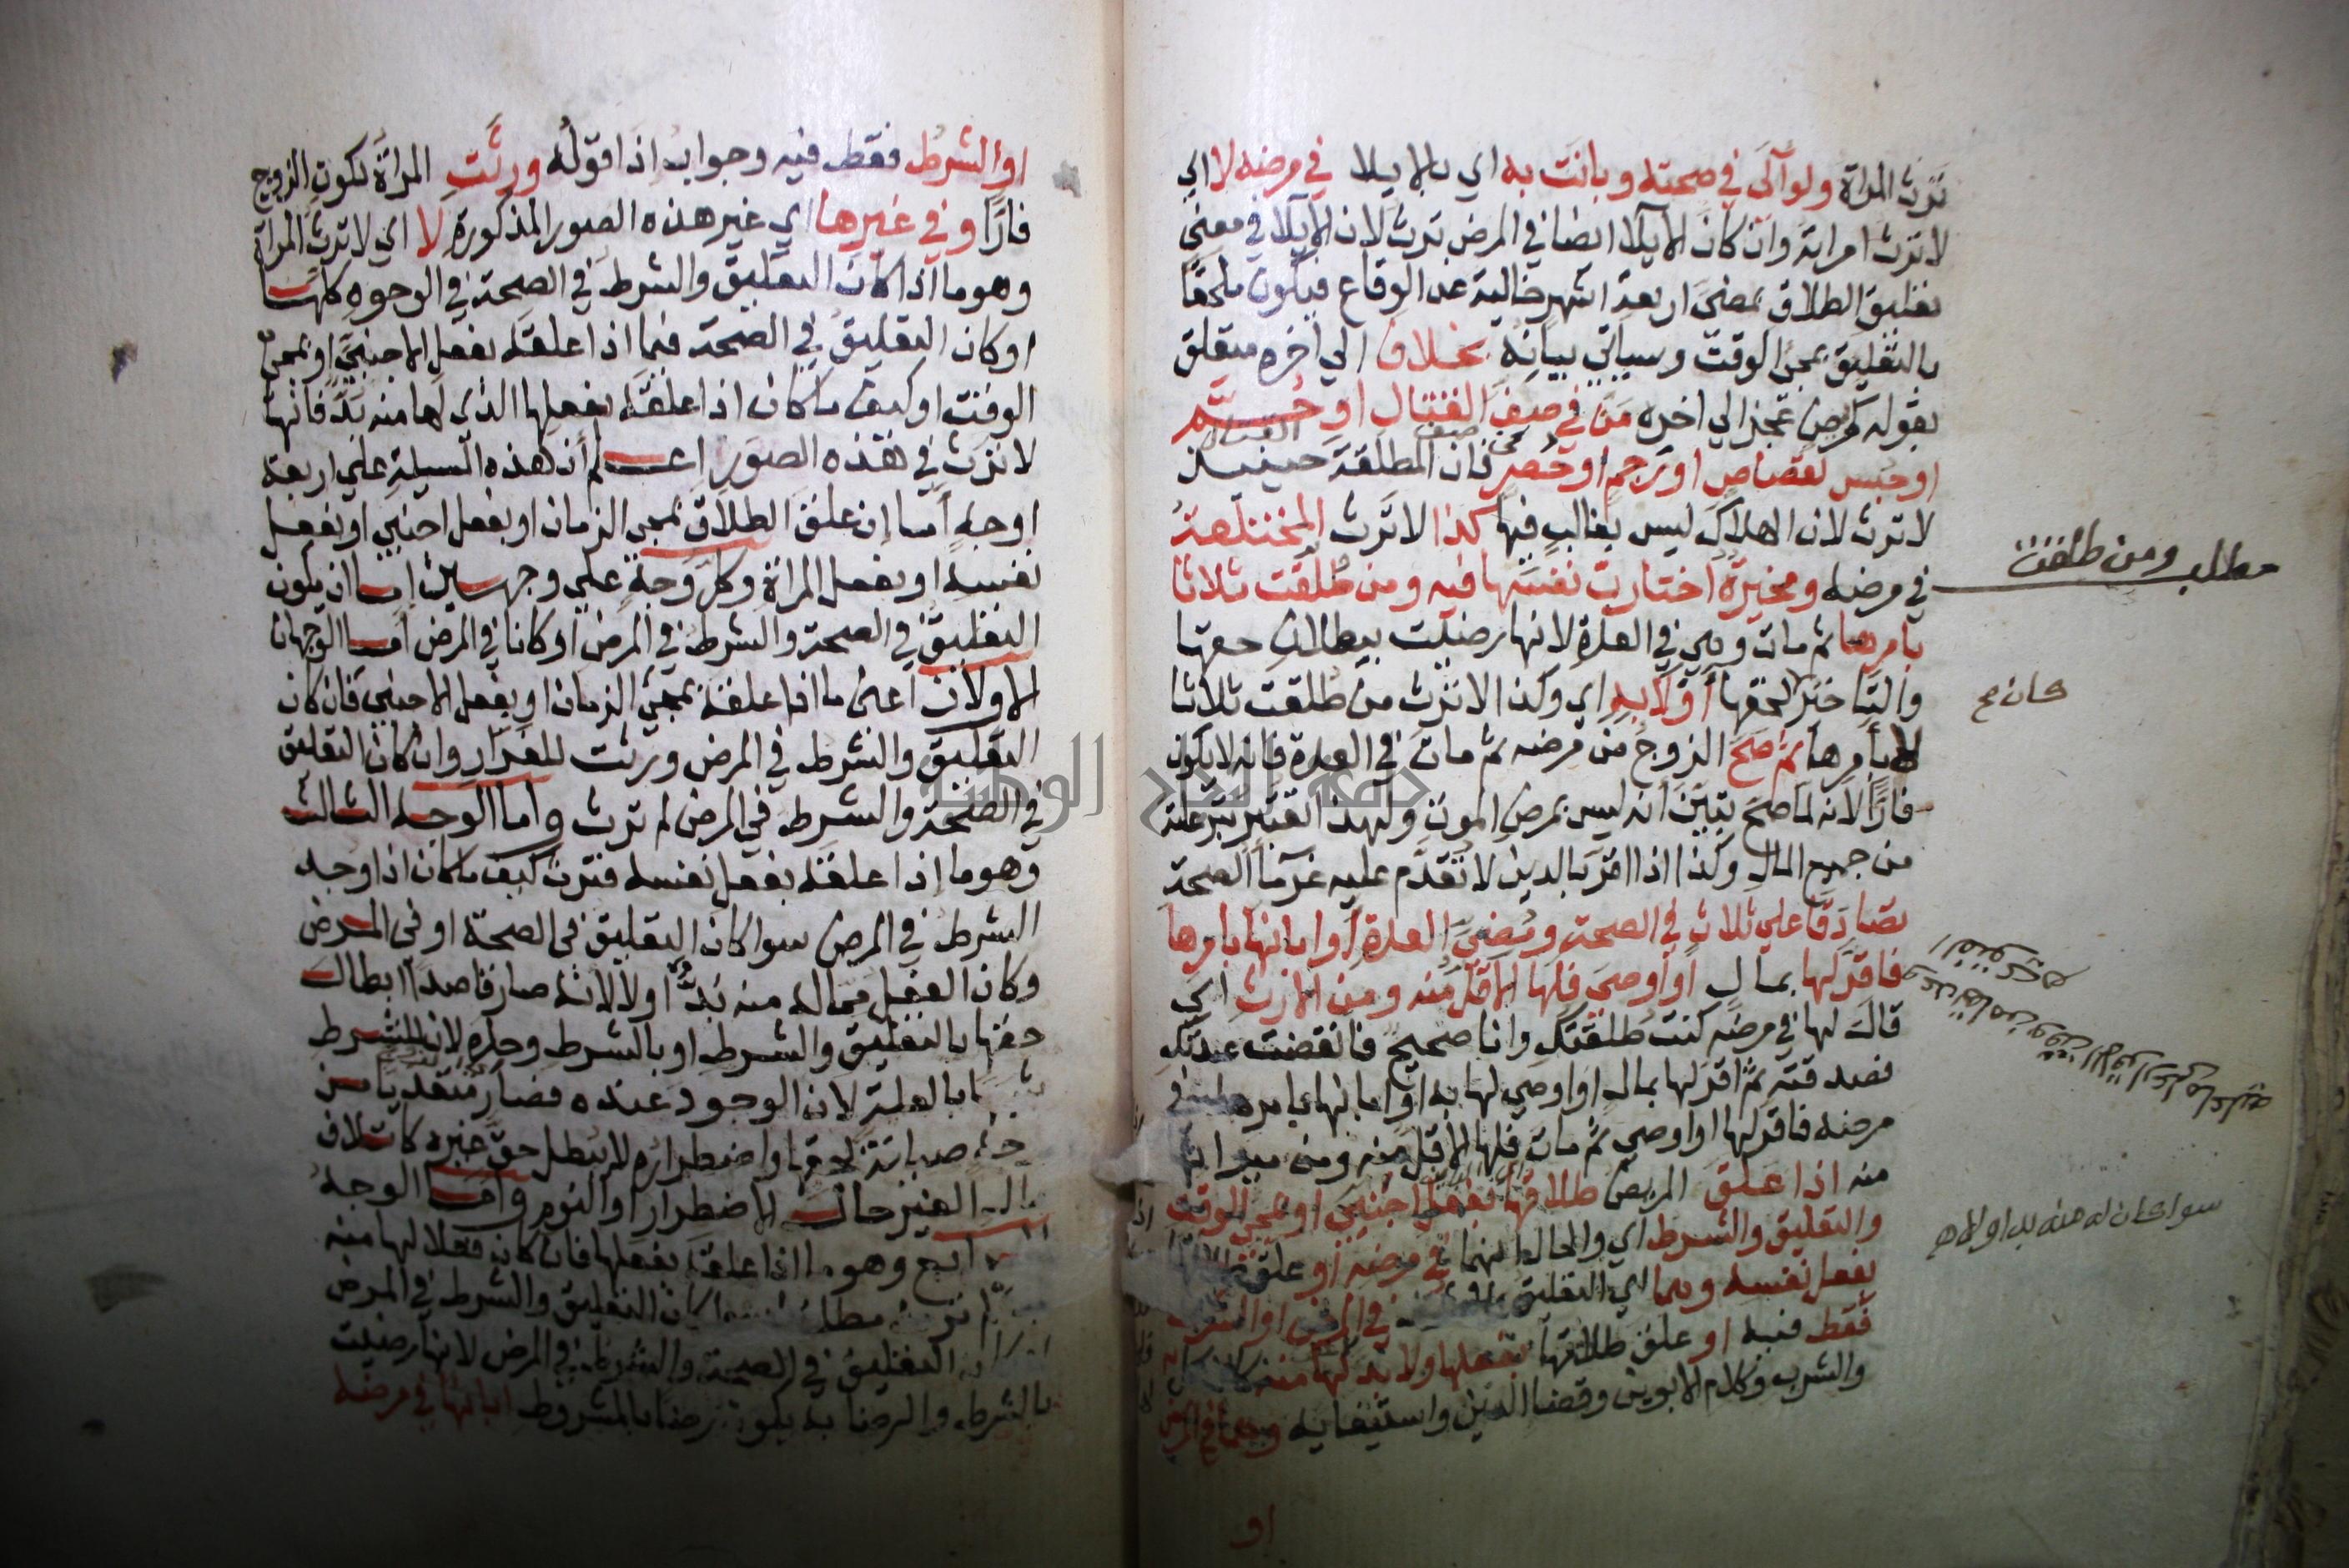 ترث المراة ولو آلى في صحته وبانت به اي بالايلا في مرضه لا اي
لا ترث امراته وان كان الايلا ايضا في المرض ترث لان الايلا في معنى
تعليق الطلاق بمضي اربعة اشهر خالية عن الوقاع فيكون ملحقا
بالتعليق بمجئ الوقت وسياتي بيانه بخلاف الي اخره متعلق
بقوله كمريض عجز الي اخره من في صف القتال او حم
او حبس لقصاص او رجم او حصر فان المطلقة حينئذ
لا ترث لان الهلاك ليس بغالب فيها كذا لا ترث المختلعة
في مرضه ومخيرة اختارت نفسها فيه ومن طلقت ثلاثا
مطلب ومن طلقت
بامرها ثم مات وهي في العدة لانها رضيت ببطلان حقها
والتاخير لحقها أولا به اي وكذا لا ترث من طلقت ثلاثا
كان صح
لا بامرها ثم صح الزوج من مرضه ثم مات في العدة فانه لا يكون
فارا لانه لما صح تبين انه ليس بمرض الموت ولهذا اعتبر تبرعاته
من جميع المال وكذا اذا اقر بالدين لا تقدم عليه غرما الصحة
تصادقا علي ثلاث في الصحة ومضي العدة او ابانها بامرها
فاقر لها بمال او اوصي فلها الاقل منه ومن الارث اي
قال لها في مرضه كنت طلقتك وانا صحيح فانقضت عدتك
فصدقته ثم اقر لها بمال او اوصي لها به او ابانها بامرها في
مرضه فاقر لها او اوصي ثم مات فلها الاقل منه ومن ميراثها
منه اذا علق المريض طلاقها بفعل اجنبي او بمجئ الوقت
والتعليق والشرط اي والحال انهما في مرضه او علق طلاقها
سوا كان له منه بد او لا صح
بفعل نفسه وهما اي التعليق والشرط في المرض او الشرط
فقط فيه او علق طلاقها بفعلها ولا بد لها منه كالاكل
والشرب وكلام الابوين وقضا الدين واستيفايه وهما في المرض
او
او الشرط فقط فيه وجواب اذا قوله ورثت المراة لكون الزوج
فارا وفي غيرها اي غير هذه الصور المذكورة لا اي لا ترث المراة
وهو ما اذا كان التعليق والشرط في الصحة في الوجوه كلها
او كان التعليق في الصحة فيما اذا علقه بفعل الاجنبي او بمجئ
الوقت او كيف ما كان اذا علقه بفعلها الذي لها منه بد فانها
لا ترث في هذه الصور اعلم ان هذه المسيلة علي اربعة
اوجه اما ان علق الطلاق بمجئ الزمان او بفعل اجنبي او بفعل
نفسه او بفعل المراة وكل وجه علي وجهين اما ان يكون
التعليق في الصحة والشرط في المرض او كانا في المرض اما الوجهان
الاولان اعني ما اذا علقه بمجئ الزمان او بفعل الاجنبي فان كان
التعليق والشرط في المرض ورثت للفرار وان كان التعليق
في الصحة والشرط في المرض لم ترث واما الوجه الثالث
وهو ما اذا علقه بفعل نفسه فترث كيف ما كان اذا وجد
الشرط في المرض سوا كان التعليق في الصحة او في المرض
وكان الفعل مما له منه بد او لا لانه صار قاصدا ابطال
حقها بالتعليق والشرط او بالشرط وحده لان للشرط
بالعلة لان الوجود عنده فصار متعديا من
صيانة لحقها واضطراره لا يبطل حق غيره كاتلاف
الغير حالة الاضطرار او النوم واما الوجه
الرابع وهو ما اذا علقه بفعلها فان كان فعلا لها منه
بد لم ترث مطلقا سوا كان التعليق والشرط في المرض
او كان التعليق في الصحة والشرط في المرض لانها رضيت
بالشرط والرضا به يكون رضا بالمشروط ابانها في مرضه